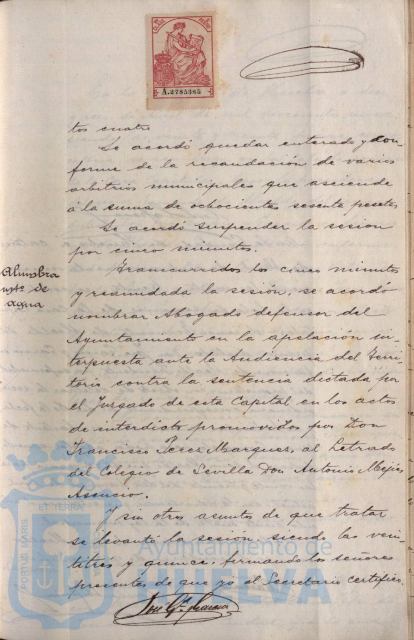 A.2785365
tos cuatro
Se acordó quedar enterado y con-
forme de la recaudación de varios
arbitrios municipales que asciende
á la suma de ochocientas sesenta pesetas
Se acordó suspender la sesion
por cinco minutos.
Alumbra
mto. de
agua
Transcurridos los cinco minutos
y reanudada la sesión, se acordó
nombrar Abogado defensor del
Ayuntamiento en la apelación in-
terpuesta ante la Audiencia del Terri-
torio contra la sentencia dictada por
el Juzgado de esta Capital en los actos
de interdicto promovidos por Don
Francisco Perez Marquez, al Letrado
del Colegio de Sevilla Don Antonio Mejias
Asencio.
Y sin otros asuntos de que tratar
se levantó la sesión, siendo las vein-
titrés y quince, firmando los señores
presentes de que yó el Secretario certifico.
PORTUS MARIS ET TERRÆ
Ayuntamiento de
HUELVA